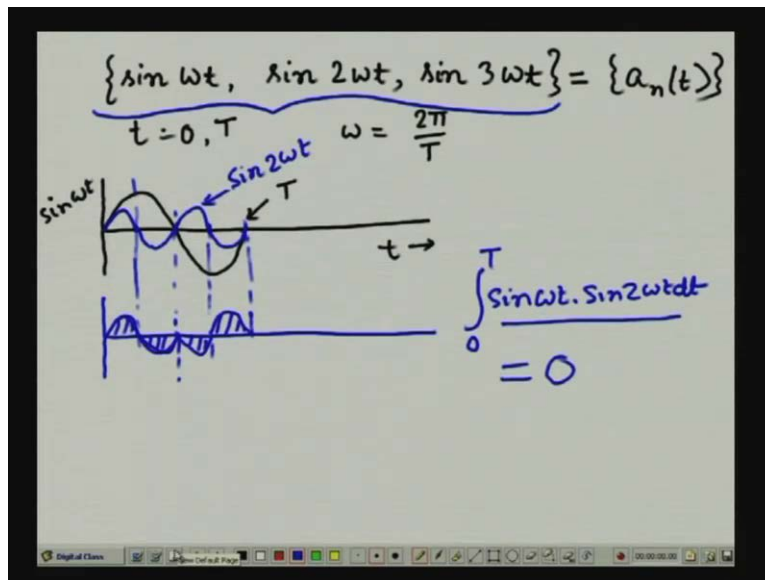 {sin ωt, sin 2ωt, sin 3ωt} = {aₙ(t)}
t = 0, T ω = 2π/T
sin 2ωt
sin ωt
T
t →
∫₀ᵀ sin ωt . sin 2ωt dt
= 0
Digital Class
New Default Page
00:00:00.00